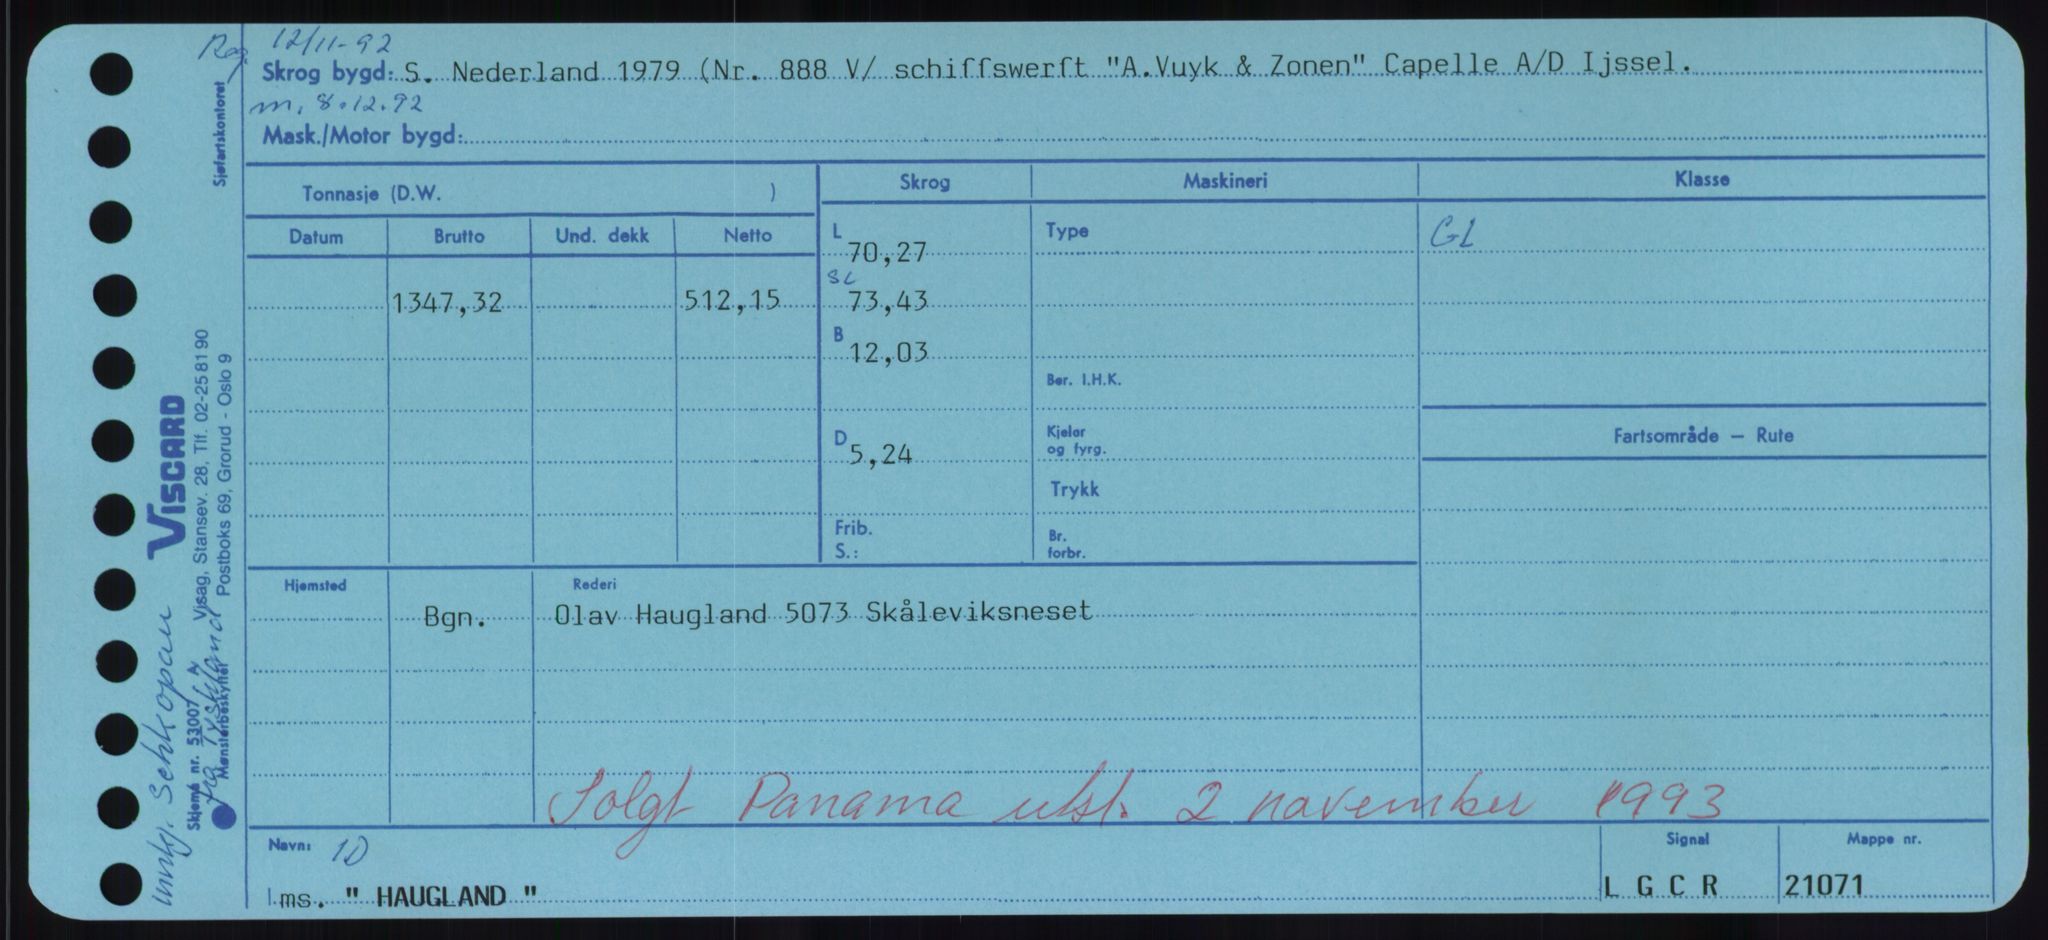 Reg. 12/11-92
Skrog bygd: S. Nederland 1979 (Nr. 888 V/ schiffswerft "A.Vuyk & Zonen" Capelle A/D Ijssel.
m. 8.12.92
Mask./Motor bygd:
Tonnasje (D.W. )
Skrog Maskineri Klasse
Datum Brutto Und. dekk Netto
L 70,27 Type GL
SL
1347,32 512,15 73,43
B 12,03
Ber. I.H.K.
D 5,24 Kjeler og fyrg. Fartsområde — Rute
Trykk
Frib. S.: Br. forbr.
Hjemsted Rederi
Bgn. Olav Haugland 5073 Skåleviksneset
Solgt Panama utst. 2 november 1993
Navn: 1D Signal Mappe nr.
ms. " HAUGLAND " L G C R 21071
Sjøfartskontoret
VISCARD
Visag, Stansev. 28, Tlf. 02-25 81 90
Postboks 69, Grorud - Oslo 9
Skjema nr. 53007 A
Mønsterbeskyttet
Innkj. Schkopau
fra Tyskland